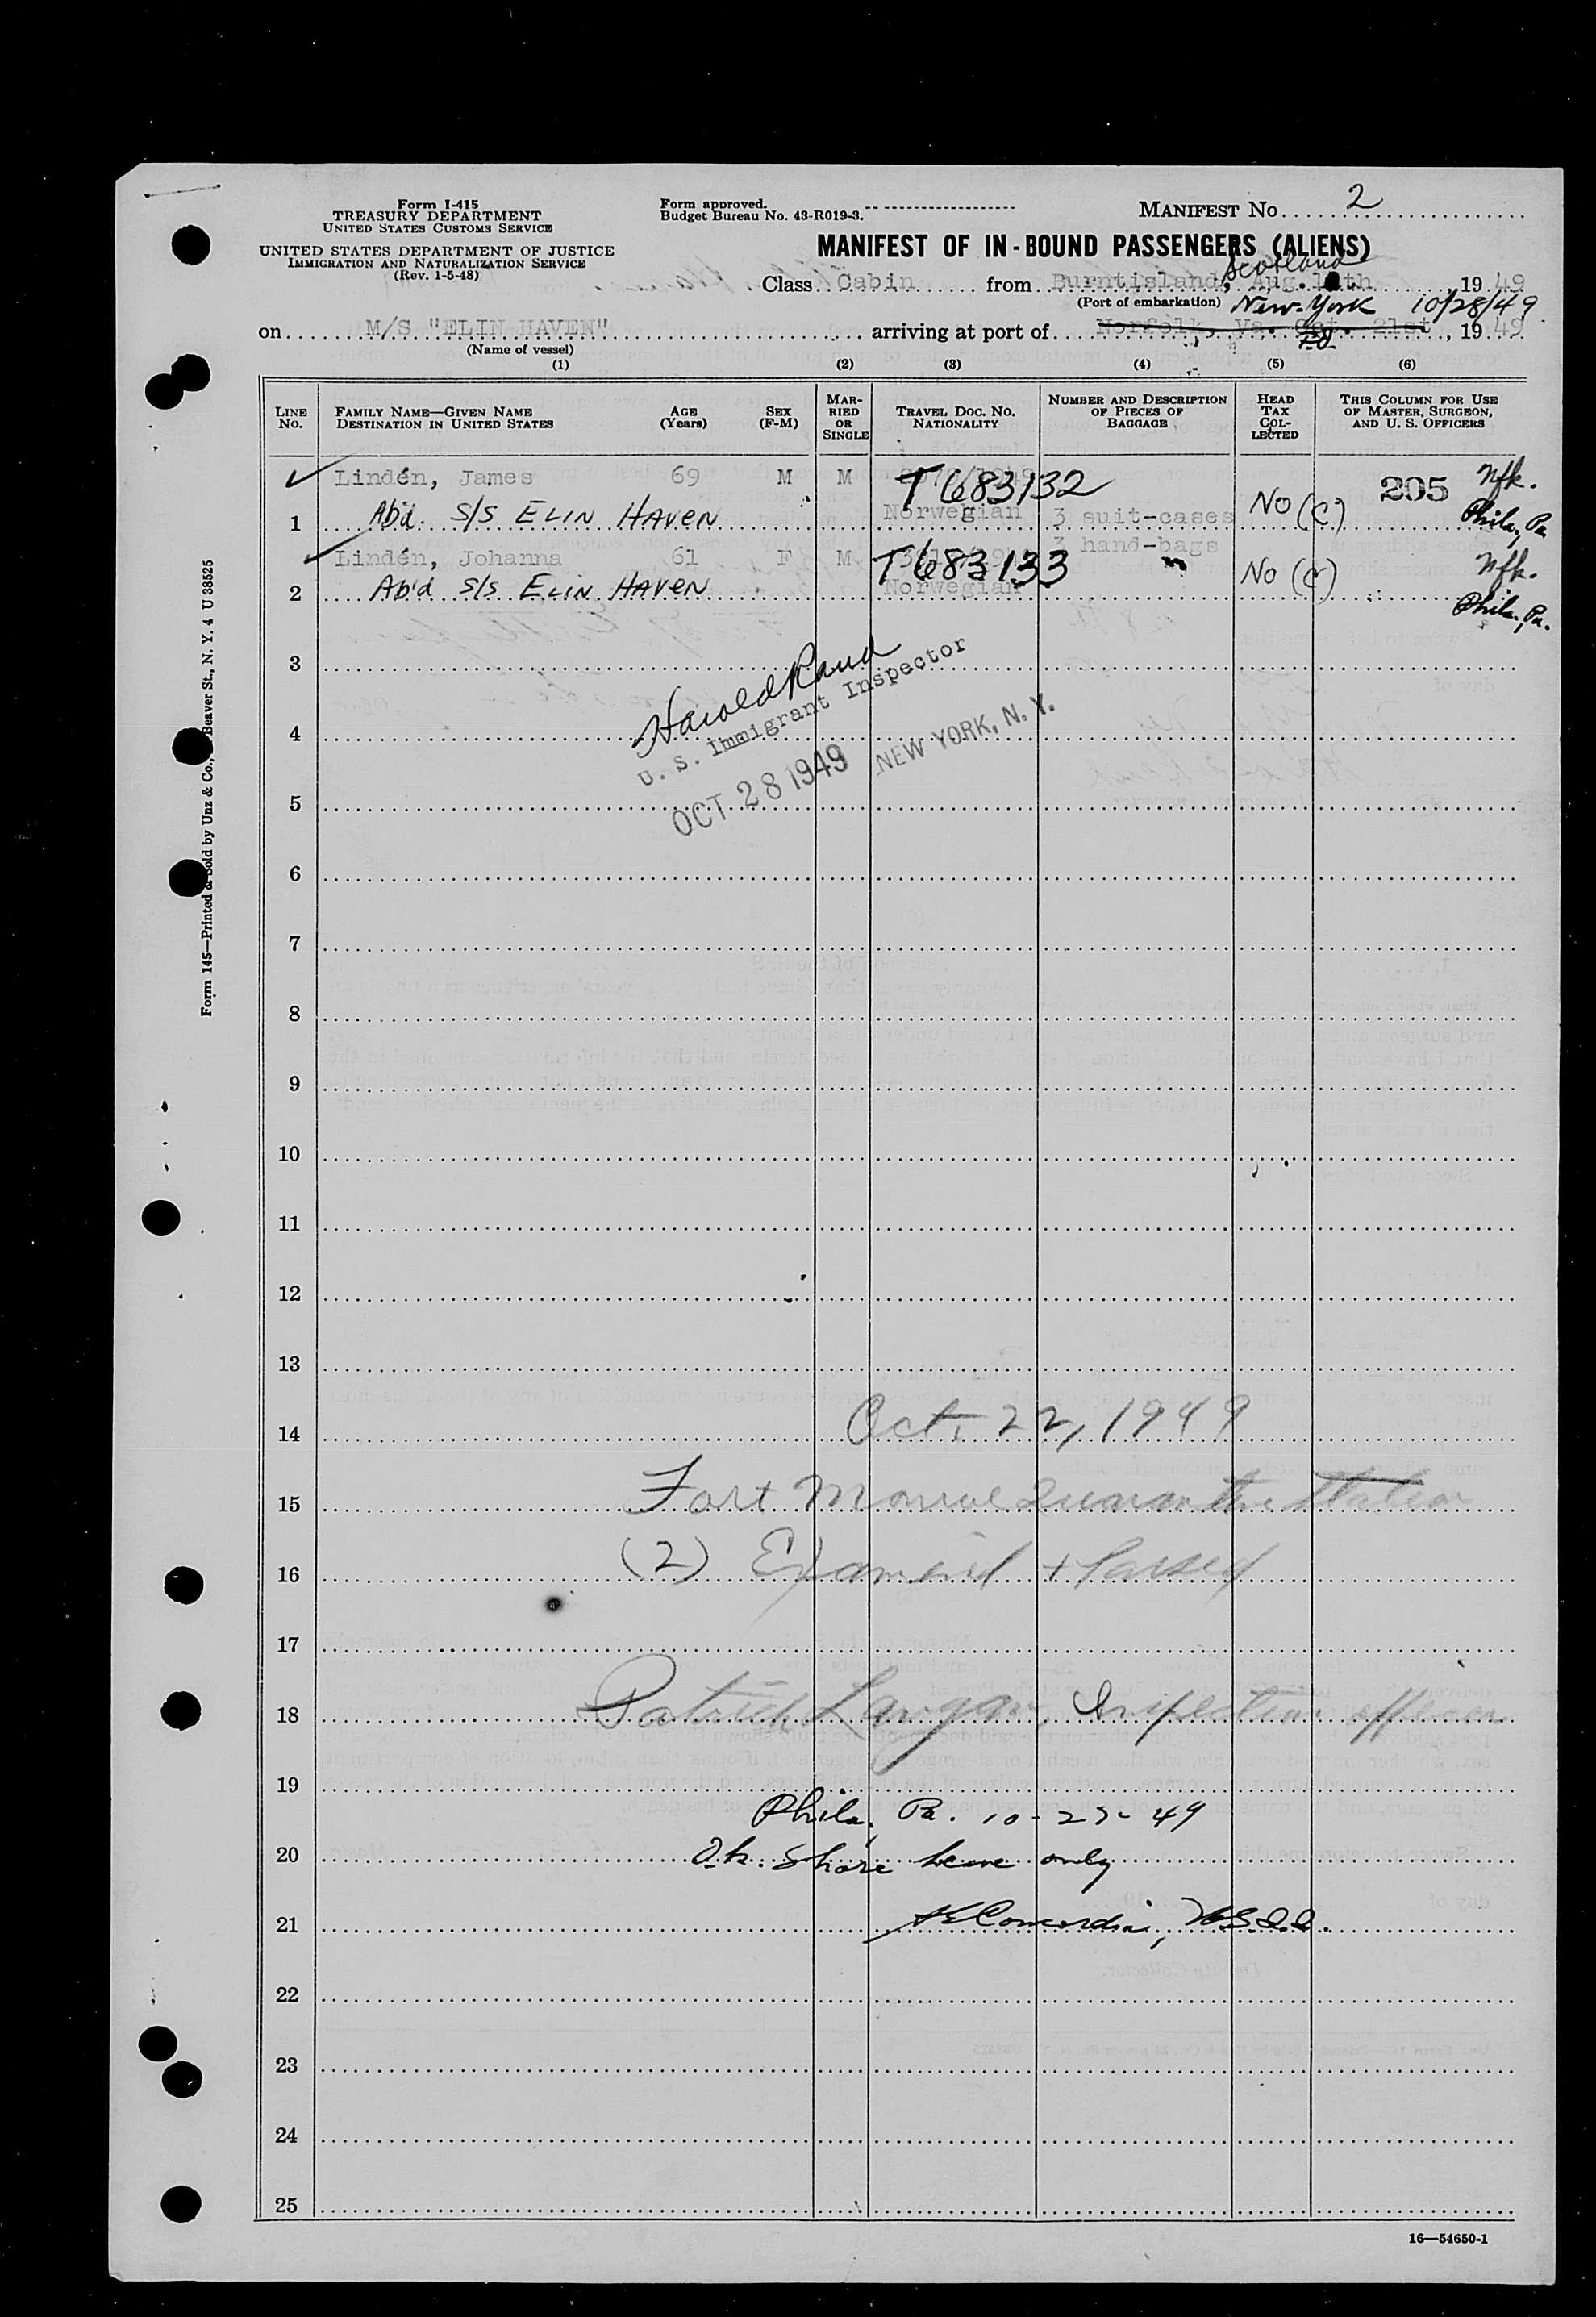 Form I-415
TREASURY DEPARTMENT
UNITED STATES CUSTOMS SERVICE
UNITED STATES DEPARTMENT OF JUSTICE
IMMIGRATION AND NATURALIZATION SERVICE
(Rev. 1-5-48)
Form approved.
Budget Bureau No. 43-R019-3.
MANIFEST No. 2
MANIFEST OF IN-BOUND PASSENGERS (ALIENS)
Scotland
Class Cabin from Burntisland, Aug. th 1949
(Port of embarkation) New-York 10/28/49
on M/S "ELIN HAVEN" arriving at port of Norfolk, Va. Oct. 21st, 1949
(Name of vessel)
(1) (2) (3) (4) (5) (6)
LINE No. FAMILY NAME—GIVEN NAME DESTINATION IN UNITED STATES AGE (Years) SEX (F-M) MARRIED OR SINGLE TRAVEL DOC. NO. NATIONALITY NUMBER AND DESCRIPTION OF PIECES OF BAGGAGE HEAD TAX COLLECTED THIS COLUMN FOR USE OF MASTER, SURGEON, AND U. S. OFFICERS
Lindén, James 69 M M T683132 205 Nfk.
1 Ab'd S/S ELIN HAVEN Norwegian 3 suit-cases No (C) Phila, Pa
Lindén, Johanna 61 F M T683133 3 hand-bags Nfk.
2 Ab'd S/S ELIN HAVEN Norwegian No (C) Phila, Pa.
3
Harold Rand
U. S. Immigrant Inspector
4
OCT 28 1949 NEW YORK, N. Y.
5
6
7
8
9
10
11
12
13
14 Oct. 22, 1949
15 Fort Monroe Quarantine Station
16 (2) Examined + Passed
17
18 Patrick Inspection officer
19
Phila, Pa. 10-27-49
20 O.k. Shore leave only
21 Concordia, U.S.I.I.
22
23
24
25
16—54650-1
Form 145—Printed & Sold by Unz & Co., Beaver St., N. Y. 4 U 38525